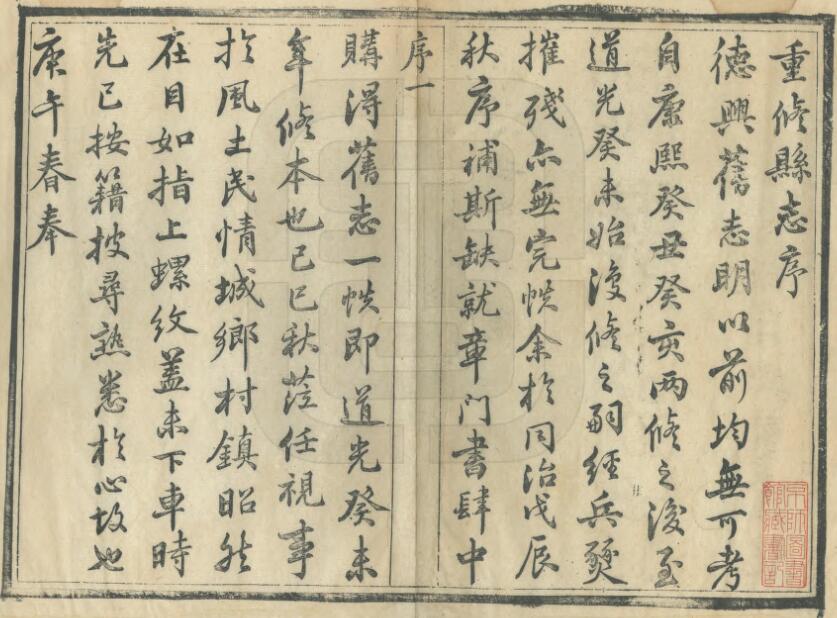 重修縣志序
德興舊志明以前均無可考
自康熙癸丑癸亥兩修之後至
道光癸未始復修之嗣經兵燹
摧殘亦無完帙余於同治戊辰
秋序補斯缺就章門書肆中
序一
購得舊志一帙即道光癸未
年修本也己巳秋蒞任視事
於風土民情城鄉村鎮昭然
在目如指上螺紋蓋未下車時
先已按籍披尋熟悉於心故也
庚午春奉
京師圖書館藏書記